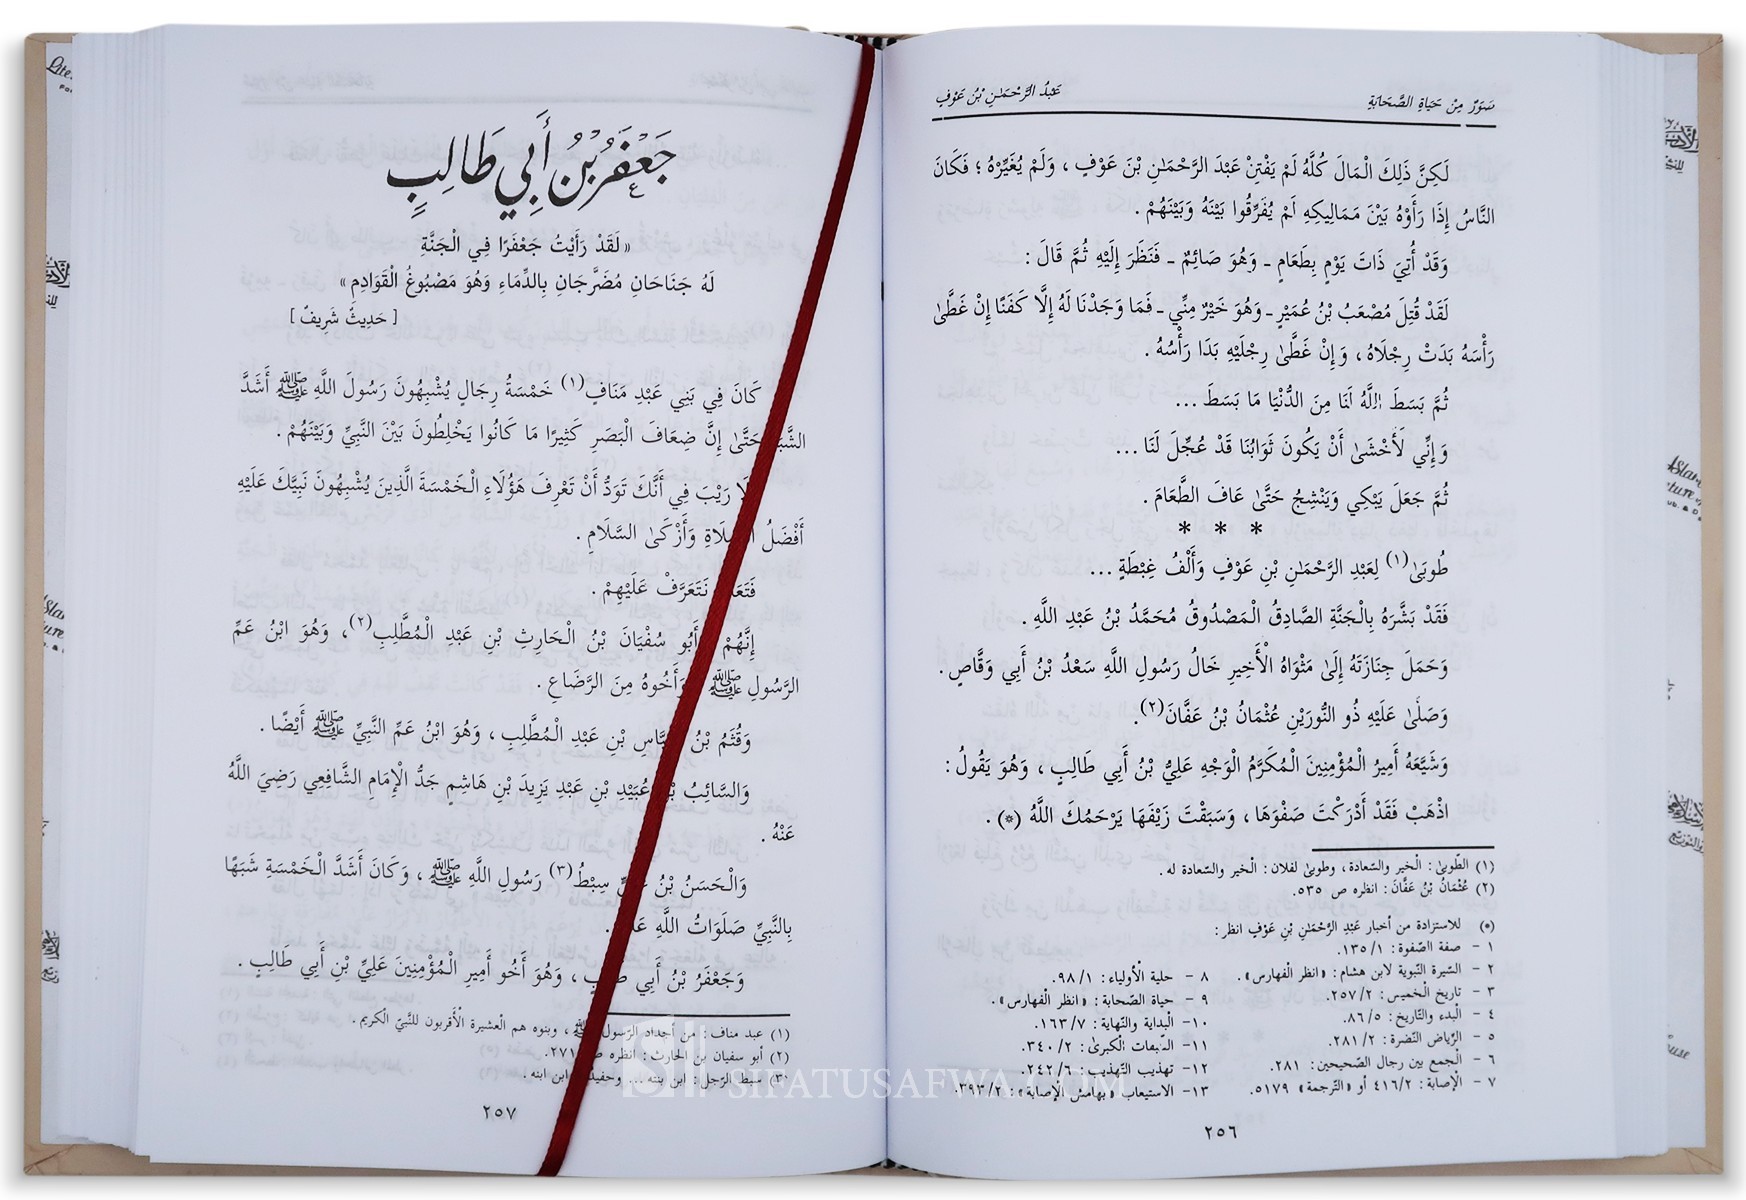 صُوَرٌ مِنْ حَيَاةِ الصَّحَابَةِ
عَبْدُ الرَّحْمَـٰنِ بْنُ عَوْفٍ
لَكِنَّ ذَلِكَ الْمَالَ كُلَّهُ لَمْ يَفْتِنْ عَبْدَ الرَّحْمَـٰنِ بْنَ عَوْفٍ ، وَلَمْ يُغَيِّرْهُ ؛ فَكَانَ
النَّاسُ إِذَا رَأَوْهُ بَيْنَ مَمَالِيكِهِ لَمْ يُفَرِّقُوا بَيْنَهُ وَبَيْنَهُمْ .
وَقَدْ أُتِيَ ذَاتَ يَوْمٍ بِطَعَامٍ ـ وَهُوَ صَائِمٌ ـ فَنَظَرَ إِلَيْهِ ثُمَّ قَالَ :
لَقَدْ قُتِلَ مُصْعَبُ بْنُ عُمَيْرٍ ـ وَهُوَ خَيْرٌ مِنِّي ـ فَمَا وَجَدْنَا لَهُ إِلَّا كَفَنًا إِنْ غَطَّىٰ
رَأْسَهُ بَدَتْ رِجْلَاهُ ، وَإِنْ غَطَّىٰ رِجْلَيْهِ بَدَا رَأْسُهُ .
ثُمَّ بَسَطَ اللَّهُ لَنَا مِنَ الدُّنْيَا مَا بَسَطَ ...
وَإِنِّي لَأَخْشَىٰ أَنْ يَكُونَ ثَوَابُنَا قَدْ عُجِّلَ لَنَا ...
ثُمَّ جَعَلَ يَبْكِي وَيَنْشِجُ حَتَّىٰ عَافَ الطَّعَامَ .
* * *
طُوبَىٰ (١) لِعَبْدِ الرَّحْمَـٰنِ بْنِ عَوْفٍ وَأَلْفُ غِبْطَةٍ ...
فَقَدْ بَشَّرَهُ بِالْجَنَّةِ الصَّادِقُ الْمَصْدُوقُ مُحَمَّدُ بْنُ عَبْدِ اللَّهِ .
وَحَمَلَ جِنَازَتَهُ إِلَىٰ مَثْوَاهُ الْأَخِيرِ خَالُ رَسُولِ اللَّهِ سَعْدُ بْنُ أَبِي وَقَّاصٍ .
وَصَلَّىٰ عَلَيْهِ ذُو النُّورَيْنِ عُثْمَانُ بْنُ عَفَّانَ (٢).
وَشَيَّعَهُ أَمِيرُ الْمُؤْمِنِينَ الْمُكَرَّمُ الْوَجْهِ عَلِيُّ بْنُ أَبِي طَالِبٍ ، وَهُوَ يَقُولُ :
اذْهَبْ فَقَدْ أَدْرَكْتَ صَفْوَهَا ، وَسَبَقْتَ زَيْفَهَا يَرْحَمُكَ اللَّهُ (*) .
(١) الطّوبىٰ : الْخير والسّعادة، وطوبىٰ لفلان : الْخير والسّعادة له .
(٢) عُثْمَانُ بْنُ عَفَّانَ : انظره ص ٥٣٥.
(*) للاستزادة من أخبار عَبْدِ الرَّحْمَـٰنِ بْنِ عَوْفٍ انظر:
١ – صفة الصّفوة : ١٣٥/١.
٢ – السّيرة النّبوية لابن هشام : «انظر الْفهارس».
٣ – تاريخ الْخميس : ٢٥٧/٢.
٤ – الْبدء والتّاريخ : ٨٦/٥.
٥ – الرّياض النّضرة : ٢٨١/٢.
٦ – الْجمع بين رجال الصّحيحين : ٢٨١.
٧ – الْإصابة : ٤١٦/٢ أو «التّرجمة» ٥١٧٩.
٨ – حلية الْأولياء : ٩٨/١.
٩ – حياة الصّحابة : «انظر الْفهارس».
١٠– الْبداية والنّهاية : ١٦٣/٧.
١١– الطّبقات الْكبرىٰ : ٣٤٠/٢.
١٢– تهذيب التّهذيب : ٢٤٢/٦.
١٣– الاستيعاب «بهامش الْإصابة» : ٣٩٣/٢.
٢٥٦
جَعْفَرُ بْنُ أَبِي طَالِبٍ
«لَقَدْ رَأَيْتُ جَعْفَرًا فِي الْجَنَّةِ
لَهُ جَنَاحَانِ مُضَرَّجَانِ بِالدِّمَاءِ وَهُوَ مَصْبُوغُ الْقَوَادِمِ»
[ حَدِيثٌ شَرِيفٌ ]
كَانَ فِي بَنِي عَبْدِ مَنَافٍ (١) خَمْسَةُ رِجَالٍ يُشْبِهُونَ رَسُولَ اللَّهِ ﷺ أَشَدَّ
الشَّبَهِ حَتَّىٰ إِنَّ ضِعَافَ الْبَصَرِ كَثِيرًا مَا كَانُوا يَخْلِطُونَ بَيْنَ النَّبِيِّ وَبَيْنَهُمْ .
لَا رَيْبَ فِي أَنَّكَ تَوَدُّ أَنْ تَعْرِفَ هَؤُلَاءِ الْخَمْسَةَ الَّذِينَ يُشْبِهُونَ نَبِيَّكَ عَلَيْهِ
أَفْضَلُ الصَّلَاةِ وَأَزْكَىٰ السَّلَامِ .
فَتَعَالَ نَتَعَرَّفْ عَلَيْهِمْ .
إِنَّهُمْ أَبُو سُفْيَانَ بْنُ الْحَارِثِ بْنِ عَبْدِ الْمُطَّلِبِ (٢) ، وَهُوَ ابْنُ عَمِّ
الرَّسُولِ ﷺ وَأَخُوهُ مِنَ الرَّضَاعِ .
وَقُثَمُ بْنُ الْعَبَّاسِ بْنِ عَبْدِ الْمُطَّلِبِ ، وَهُوَ ابْنُ عَمِّ النَّبِيِّ ﷺ أَيْضًا .
وَالسَّائِبُ بْنُ عُبَيْدِ بْنِ عَبْدِ يَزِيدَ بْنِ هَاشِمٍ جَدُّ الْإِمَامِ الشَّافِعِي رَضِيَ اللَّهُ
عَنْهُ .
وَالْحَسَنُ بْنُ عَلِيٍّ سِبْطُ (٣) رَسُولِ اللَّهِ ﷺ ، وَكَانَ أَشَدَّ الْخَمْسَةِ شَبَهًا
بِالنَّبِيِّ صَلَوَاتُ اللَّهِ عَلَيْهِ .
وَجَعْفَرُ بْنُ أَبِي طَالِبٍ ، وَهُوَ أَخُو أَمِيرِ الْمُؤْمِنِينَ عَلِيِّ بْنِ أَبِي طَالِبٍ .
(١) عبد مناف : من أجداد الرّسول ﷺ ، وبنوه هم العشيرة الْأقربون للنّبيّ الْكريم .
(٢) أبو سفيان بن الحارث : انظره ص ٢٧١.
(٣) سبط الرّجل : ابن بنته ... وحفيده : ابن ابنه .
٢٥٧
SIFATUSAFWA.COM